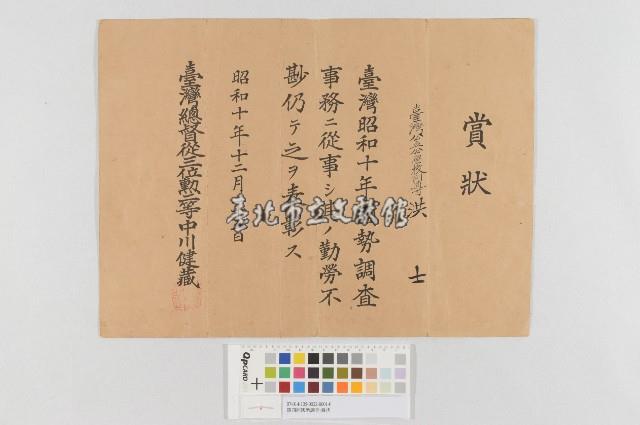 賞狀
臺灣公立公學校訓導 洪 士
臺灣昭和十年 勢調査
事務ニ從事シ其ノ勤勞不
尠仍テ之ヲ表彰ス
昭和十年十二月 日
臺灣總督從三位勲一等中川健藏
臺北市立文獻館
QPCARD